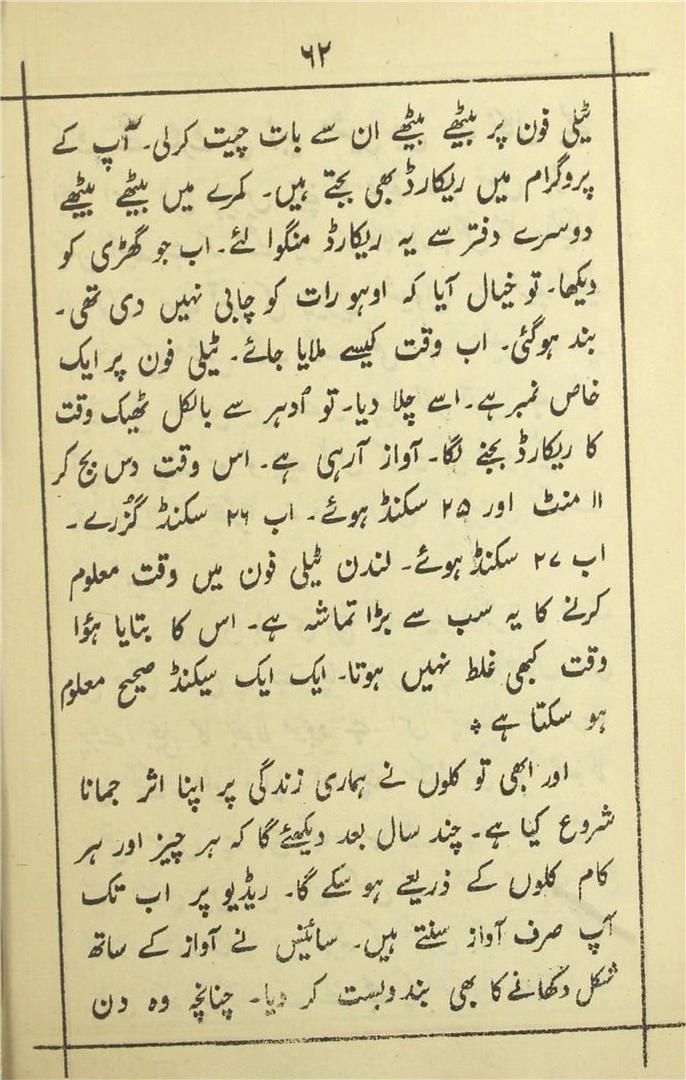 ۶۲
ٹیلی فون پر بیٹھے بیٹھے ان سے بات چیت کرلی۔ آپ کے
پروگرام میں ریکارڈ بھی بجتے ہیں۔ کمرے میں بیٹھے بیٹھے
دوسرے دفتر سے یہ ریکارڈ منگوا لئے۔ اب جو گھڑی کو
دیکھا۔ تو خیال آیا کہ اوہو رات کو چابی نہیں دی تھی۔
بند ہوگئی۔ اب وقت کیسے ملایا جائے۔ ٹیلی فون پر ایک
خاص نمبر ہے۔ اسے چلا دیا۔ تو اُدہر سے بالکل ٹھیک وقت
کا ریکارڈ بجنے لگا۔ آواز آرہی ہے۔ اس وقت دس بج کر
۱۱ منٹ اور ۲۵ سکنڈ ہوئے۔ اب ۲۶ سکنڈ گزُرے۔
اب ۲۷ سکنڈ ہوئے۔ لندن ٹیلی فون میں وقت معلوم
کرنے کا یہ سب سے بڑا تماشہ ہے۔ اس کا بتایا ہؤا
وقت کبھی غلط نہیں ہوتا۔ ایک ایک سیکنڈ صحیح معلوم
ہو سکتا ہے ٭
اور ابھی تو کلوں نے ہماری زندگی پر اپنا اثر جمانا
شروع کیا ہے۔ چند سال بعد دیکھئے گا کہ ہر چیز اور ہر
کام کلوں کے ذریعے ہو سکے گا۔ ریڈیو پر اب تک
آپ صرف آواز سنتے ہیں۔ سائنس نے آواز کے ساتھ
شکل دکھانے کا بھی بندوبست کر دیا۔ چنانچہ وہ دن